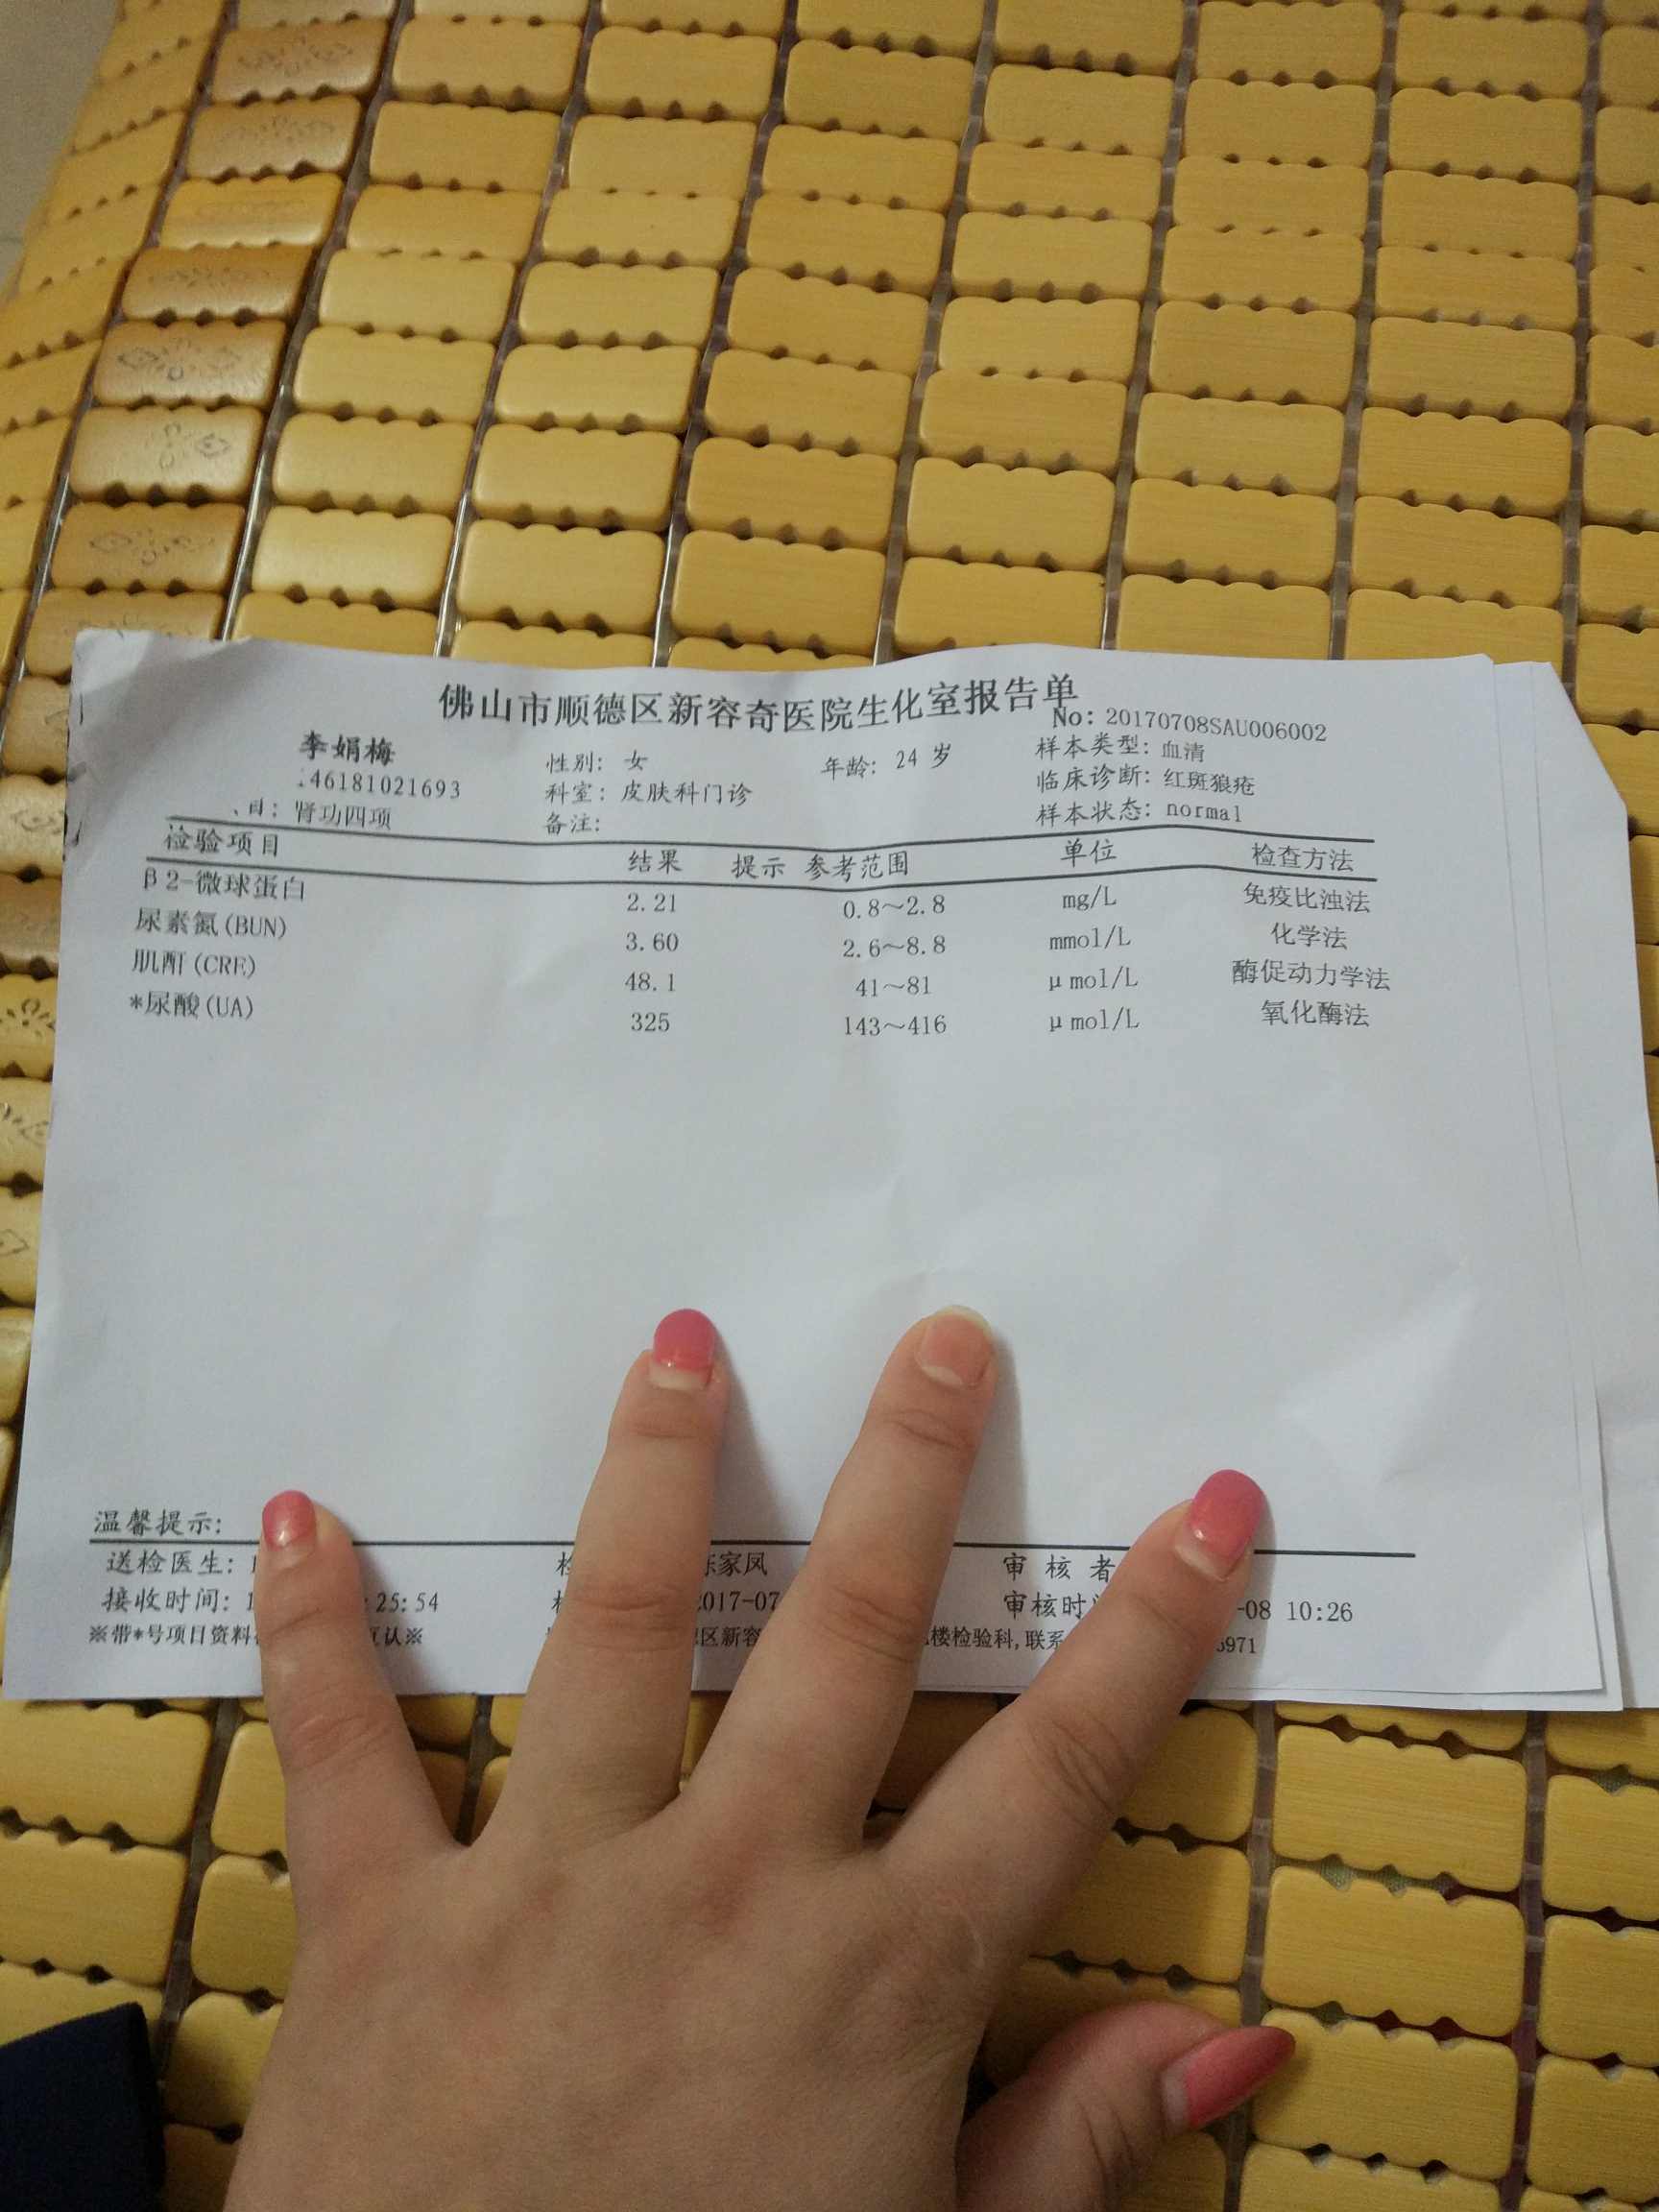 佛山市顺德区新容奇医院生化室报告单
No: 20170708SAU006002
李娟梅 性别: 女 年龄: 24 岁 样本类型: 血清
46181021693 科室: 皮肤科门诊 临床诊断: 红斑狼疮
目: 肾功四项 备注: 样本状态: normal
检验项目 结果 提示 参考范围 单位 检查方法
β2-微球蛋白 2.21 0.8~2.8 mg/L 免疫比浊法
尿素氮(BUN) 3.60 2.6~8.8 mmol/L 化学法
肌酐(CRE) 48.1 41~81 μmol/L 酶促动力学法
*尿酸(UA) 325 143~416 μmol/L 氧化酶法
温馨提示:
送检医生: 家凤 审核者
接收时间: 25:54 2017-07 审核时 -08 10:26
※带*号项目资料 互认※ 区新容 楼检验科,联系 971